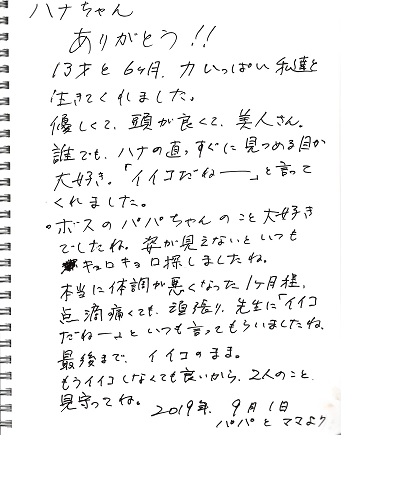 ハナちゃん
ありがとう!!
13才と6ヶ月、力いっぱい私達と
生きてくれました。
優しくて、頭が良くて、美人さん。
誰でも、ハナの直っすぐに見つめる目が
大好き。「イイコだねー」と言って
くれました。
。ボスのパパちゃんのこと大好き
でしたね。姿が見えないといつも
キョロキョロ探しましたね。
本当に体調が悪くなった1ヶ月程、
点滴痛くても、頑張り、先生に「イイコ
だねー」といつも言ってもらいましたね。
最後まで、イイコのまま。
もうイイコしなくても良いから、2人のこと、
見守ってね。
2019年、9月1日
パパとママより